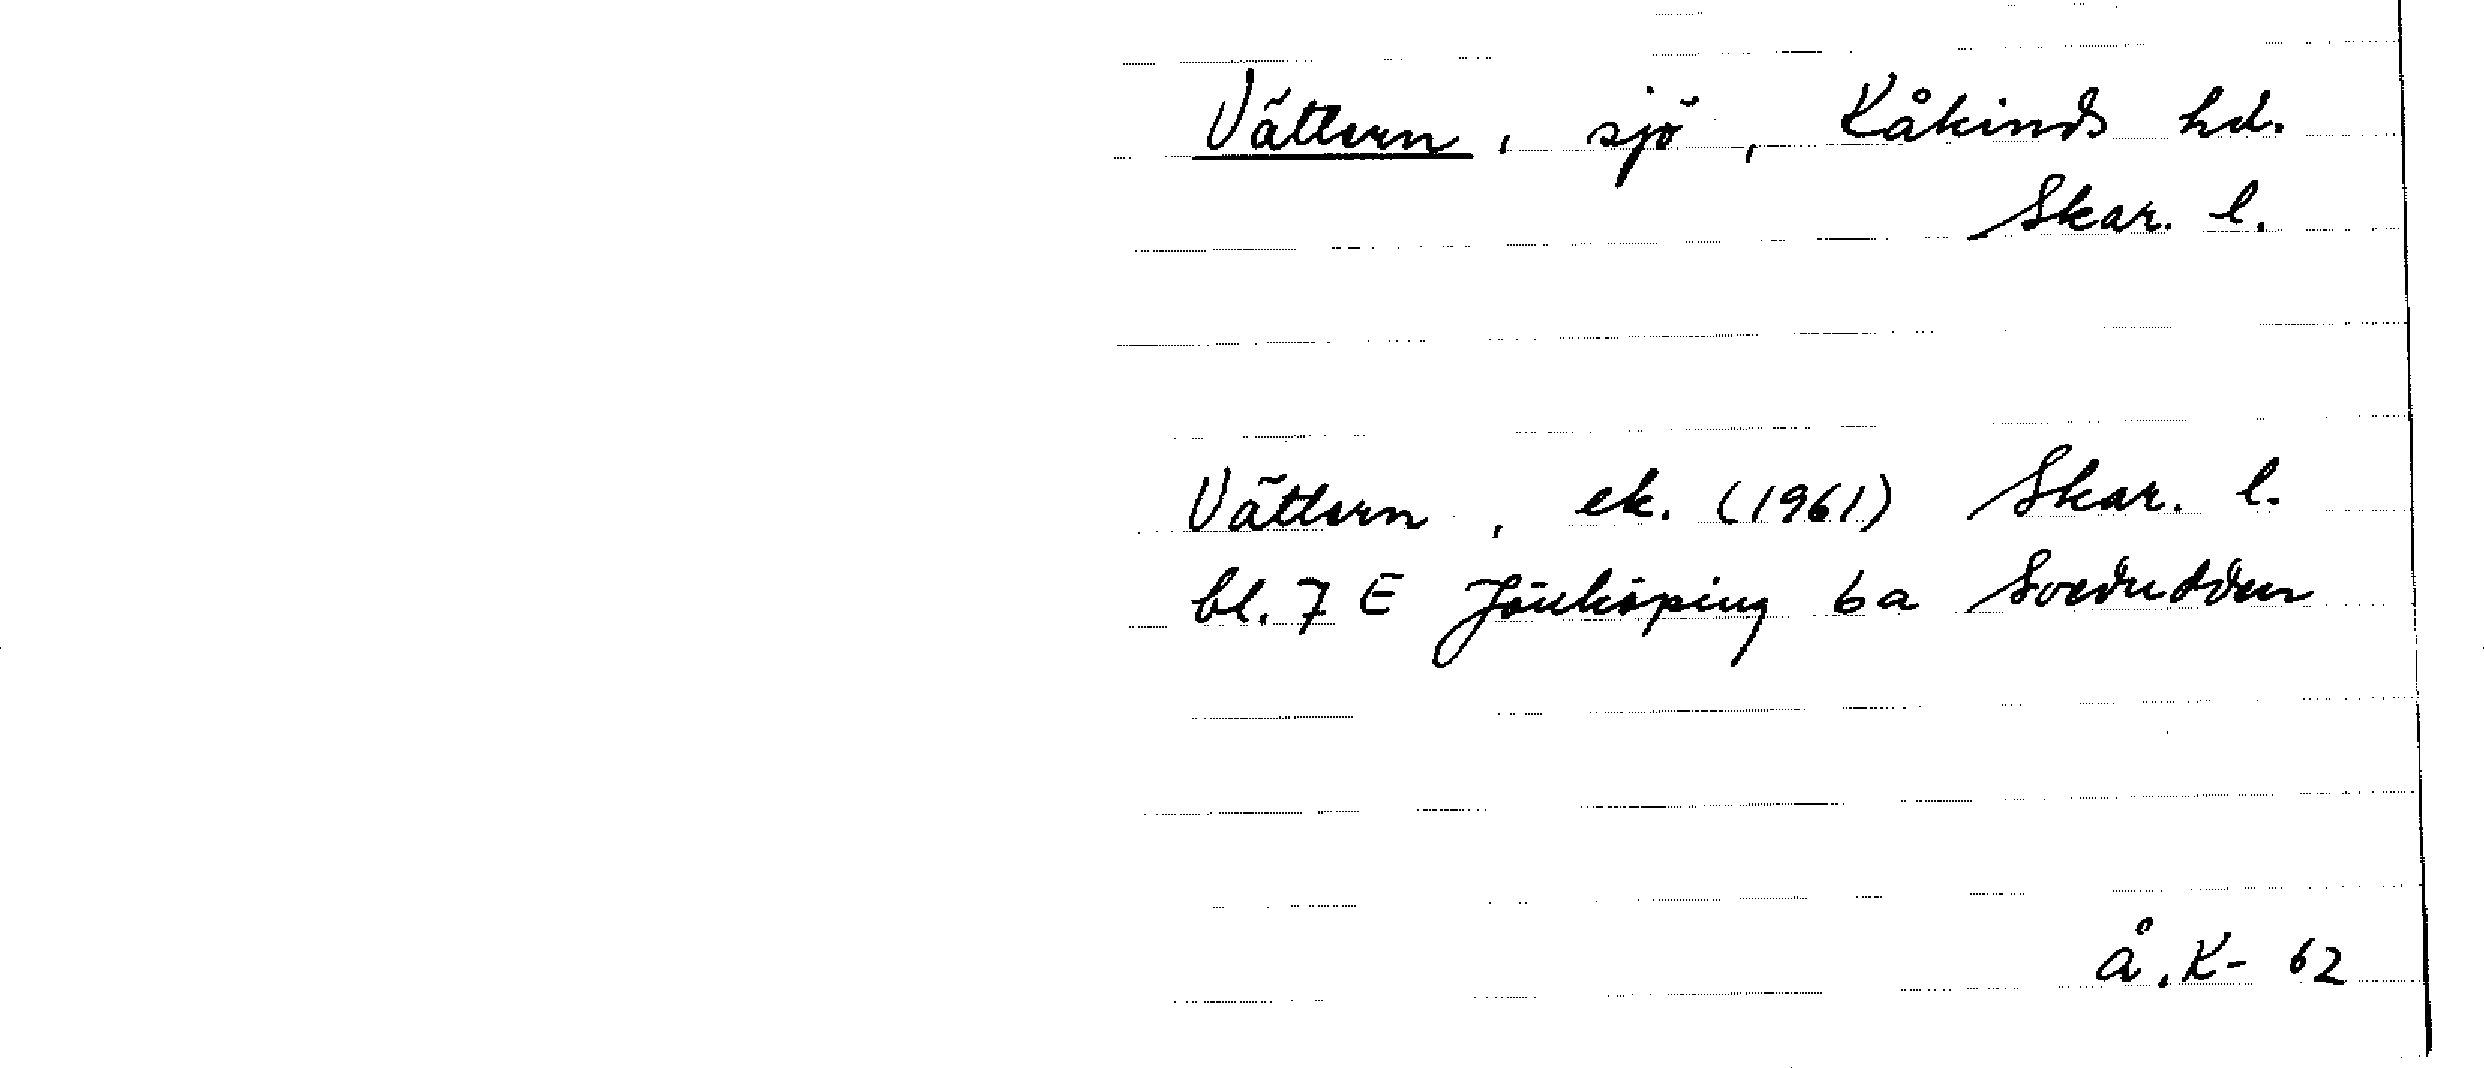 Vättern, sjö, Kåkinds hd.
Skar. l.
Vättern, ek. (1961) Skar. l.
bl. 7 E Jönköping 6a
Å.K-62